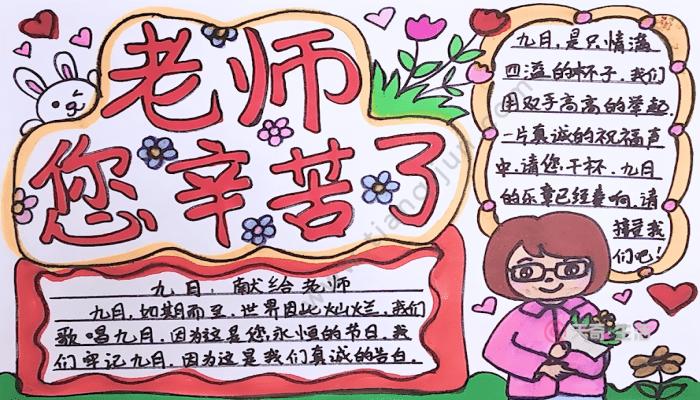 老师
您辛苦了
九月，是只情满
四溢的杯子，我们
用双手高高的举起，
一片真诚的祝福声
中，请您干杯，九月
的乐章已经奏响，请
接受我
们吧！
九月，献给老师
九月，如期而至，世界因此灿烂，我们
歌唱九月，因为这是您永恒的节日，我
们牢记九月，因为这是我们真诚的告白．